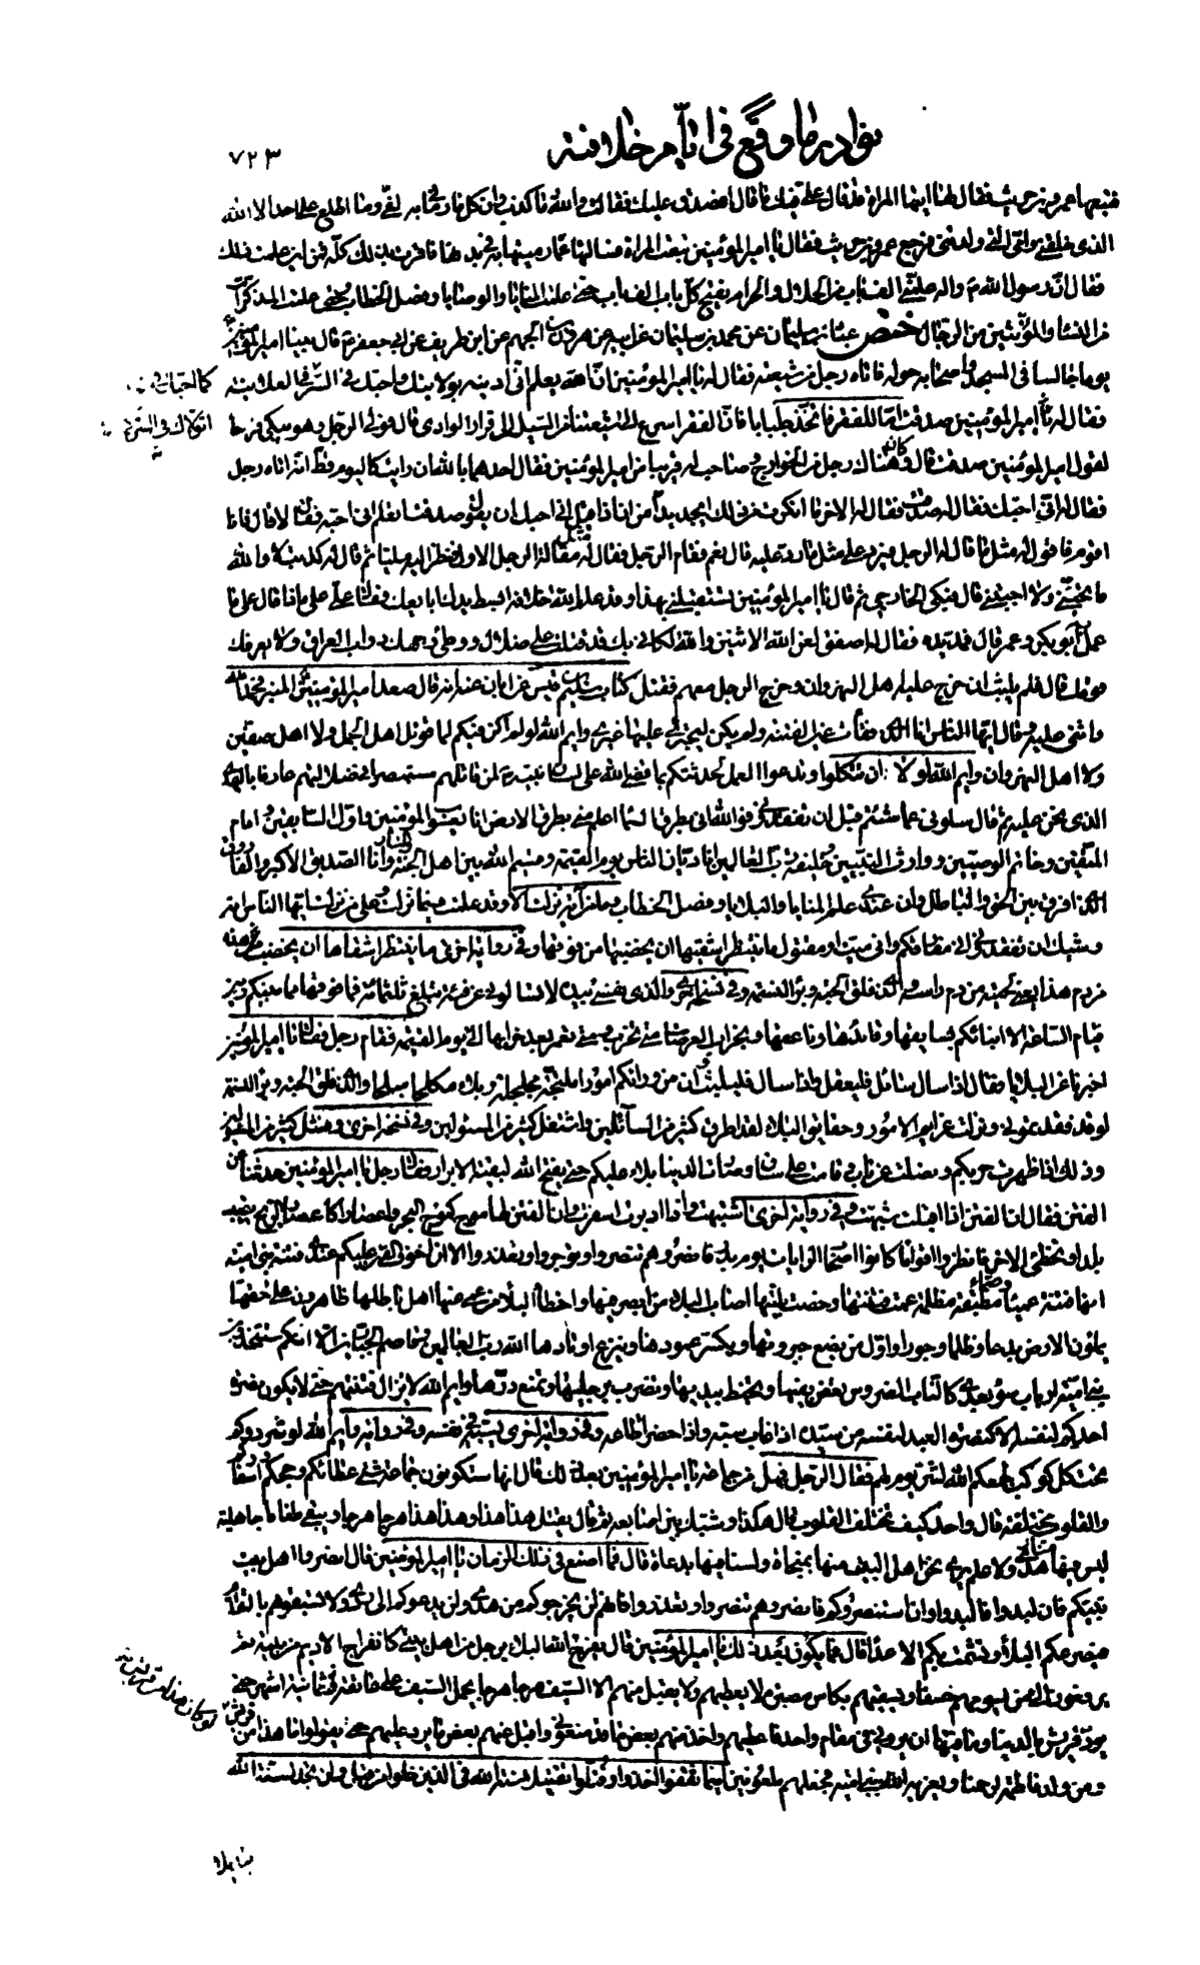 نوادر ما وقع في ايّام خلافته
٧٢٣
فتبعها عمرو بن حريث فقال لها ايتها المراة قد قال علىّ فيك ما قال افصدق عليك فقالت والله ما كذب وان كل ما رماني به لفيّ وما اطلع علىّ احد الا الله
الذي خلقني وامّي التي ولدتني فرجع عمرو بن حريث فقال يا امير المؤمنين تبعت المراة فسالتها عمّا رميتها به في بدنها فاقرت بذلك كلّه فمن اين علمت ذلك
فقال انّ رسول الله ص واله علّمني الف باب من الحلال والحرام يفتح كل باب الف باب حتى علمت المنايا والوصايا وفصل الخطاب وحتى علمت المذكرات
من النساء والمؤنثين من الرجال خص عبّاد بن سليمان عن محمد بن سليمان عن ابيه عن هرون بن الجهم عن ابن طريف عن ابي جعفر ع قال بينا امير المؤمنين
يوما جالسا في المسجد واصحابه حوله فاتاه رجل من شيعته فقال له يا امير المؤمنين انّ الله يعلم انّي ادينه بولايتك واحبك في السّر كما احبك في العلانية
فقال له امير المؤمنين صدقت امّا للفقر فاتخذ جلبابا فانّ الفقر اسرع الى شيعتنا من السيل الى قرار الوادي قال فولّى الرجل وهو يبكي فرحا
لقول امير المؤمنين صدقت قال وكان هناك رجل من الخوارج وصاحب له قريبا من امير المؤمنين فقال احدهما بالله ان رايت كاليوم قطّ انّه اتاه رجل
فقال له اني احبك فقال له صدقت فقال له الاخر ما انكرت من ذلك ايجد بدّا من ان اذا قيل له اني احبك ان يقول صدقت اتعلم اني احبه فقال لا قال فانا
اقوم فاقول له مثل ما قال له الرجل فيرد علي مثل ما رد عليه قال نعم فقام الرجل فقال له مثل مقالة الرجل الاول فنظر اليه مليا ثم قال له كذبت لا والله
ما تحبّني ولا احببتني قال فبكى الخارجي ثم قال يا امير المؤمنين تستقبلني بهذا وقد علم الله خلافه ابسط يدك ابايعك فقال علي على ماذا قال على ما
عمل ابو بكر وعمر قال فمد يده فقال له اصفق لعن الله الاثنين والله لكاني بك قد قتلت على ضلال ووطئ وجهك دواب العراق ولا يعرفك
قومك قال فلم يلبث ان خرج عليه اهل النهروان وخرج الرجل معهم فقتل كتاب سليم بن قيس عن ابان عنه انه قال صعد امير المؤمنين المنبر فحمد الله
واثنى عليه وقال ايّها الناس انا الذي فقأت عين الفتنة ولم يكن ليجترئ عليها غيري وايم الله لو لم اكن فيكم لما قوتل اهل الجمل ولا اهل صفين
ولا اهل النهروان وايم الله لولا ان تتكلوا وتدعوا العمل لحدثتكم بما قضى الله على لسان نبيه ص لمن قاتلهم مستبصرا في ضلالتهم عارفا بالهدى
الذي نحن عليه ثم قال سلوني عما شئتم قبل ان تفقدوني فوالله اني بطرق السماء اعلم مني بطرق الارض انا يعسوب المؤمنين واوّل السابقين وامام
المتقين وخاتم الوصيّين ووارث النبيّين وخليفة ربّ العالمين انا ديّان الناس يوم القيمة وقسيم الله بين اهل الجنة والنار وانا الصدّيق الاكبر والفاروق
الذي افرق بين الحق والباطل وان عندي علم المنايا والبلايا وفصل الخطاب وما من آية نزلت الا وقد علمت فيما نزلت وعلى من نزلت ايها الناس انه
وشيك ان تفقدوني اني مفارقكم واني ميّت او مقتول ما ينتظر اشقيها ان يخضبها من فوقها وفي رواية اخرى ما ينتظر اشقاها ان يخضب هذه
من دم هذا يعني لحيته من دم راسه والذي فلق الحبة وبرأ النسمة وفي نسخة اخرى والذي نفسي بيده لا تسالوني عن فئة تبلغ ثلثمائة فما فوقها مما بينكم وبين
قيام الساعة الا انبأتكم بسايقها وقائدها وناعقها وبخراب العرصات متى تخرب ومتى تعمر بعد خرابها الى يوم القيمة فقام رجل فقال يا امير المؤمنين
اخبرنا عن البلايا فقال اذا سال سائل فليعقل واذا سئل فليتثبت ان من ورائكم امورا ملتجّة مجلجلة وبلاء مكلحا مبلحا والذي فلق الحبة وبرأ النسمة
لو قد فقدتموني ونزلت عزائم الامور وحقايق البلاء لقد اطرق كثير من السائلين واشتغل كثير من المسئولين وفي نسخة اخرى وفشل كثير من المسئولين
وذلك اذا ظهرت حربكم ونصلت عن ناب وقامت على ساق وصارت الدنيا بلاء عليكم حتى يفتح الله لبقية الابرار فقال رجل يا امير المؤمنين حدثنا عن
الفتن فقال ان الفتن اذا اقبلت شبهت وفي رواية اخرى اشتبهت واذا ادبرت اسفرت وان الفتن لها موج كموج البحر واعصار كاعصار الريح تصيب
بلدا وتخطئ الاخر فانظروا اقواما كانوا اصحاب الرايات يوم بدر فانصروهم تنصروا وتوجروا وتعذروا الا ان اخوف الفتن عليكم عندي فتنة بني امية
انها فتنة عمياء صماء مطبقة مظلمة عمت فتنتها وخصت بليتها اصاب البلاء من ابصر فيها واخطأ البلاء من عمي عنها اهل باطلها ظاهرون على حقها
يملئون الارض بدعا وظلما وجورا واوّل من يضع جبروتها ويكسر عمودها وينزع اوتادها الله ربّ العالمين وقاصم الجبارين الا انكم ستجدون
بني اميّة ارباب سوء بعدي كالناب الضروس تعض بفيها وتخبط بيديها وتضرب برجليها وتمنع درّها وايم الله لا تزال فتنتهم حتى لا يكون نصرة
احدكم لنفسه الا كنصرة العبد لنفسه من سيّده اذا غاب سبّه واذا حضر اطاعه وفي رواية اخرى يسبّه في نفسه وفي رواية وايم الله لو شردوكم
تحت كل كوكب لجمعكم الله لشر يوم لهم فقال الرجل فهل من جماعة يا امير المؤمنين بعد ذلك قال انها ستكونون جماعة شتّى عطاؤكم وحجكم واسفاركم
والقلوب مختلفة قال واحد كيف تختلف القلوب قال هكذا وشبك بين اصابعه ثم قال يقتل هذا هذا وهذا هذا هرجا هرجا ويبقى طغام جاهلية
ليس فيها منار هدى ولا علم يرى نحن اهل البيت منها بمنجاة ولسنا فيها بدعاة قال فما اصنع في ذلك الزمان يا امير المؤمنين قال انصروا اهل بيت
نبيّكم فان لبدوا فالبدوا وان استنصروكم فانصروهم تنصروا وتعذروا فانهم لن يخرجوكم من هدى ولن يدعوكم الى ردى ولا تسبقوهم بالتقدّم
فيصرعكم البلاء وتشمت بكم الاعداء قال فما يكون بعد ذلك يا امير المؤمنين قال يفرج الله البلاء برجل من اهل بيتي كانفراج الاديم من بيته ثم
يرفعون الى من يسومهم خسفا ويسقيهم بكاس مصبرة ولا يعطيهم ولا يقبل منهم الا السيف هرجا هرجا يحمل السيف على عاتقه ثمانية اشهر حتى
يودّ قريش بالدنيا وما فيها ان يروني في مقام واحد فاعطيهم واخذ منهم بعض ما قد منعوني واقبل عنهم بعض ما يرد عليهم حتى يقولوا ما هذا من قريش
ومن ولد فاطمة لرحمنا ويغريه الله ببني امية فيجعلهم ملعونين اينما ثقفوا اخذوا وقتّلوا تقتيلا سنة الله في الذين خلوا من قبل ولن تجد لسنة الله
تبديلا